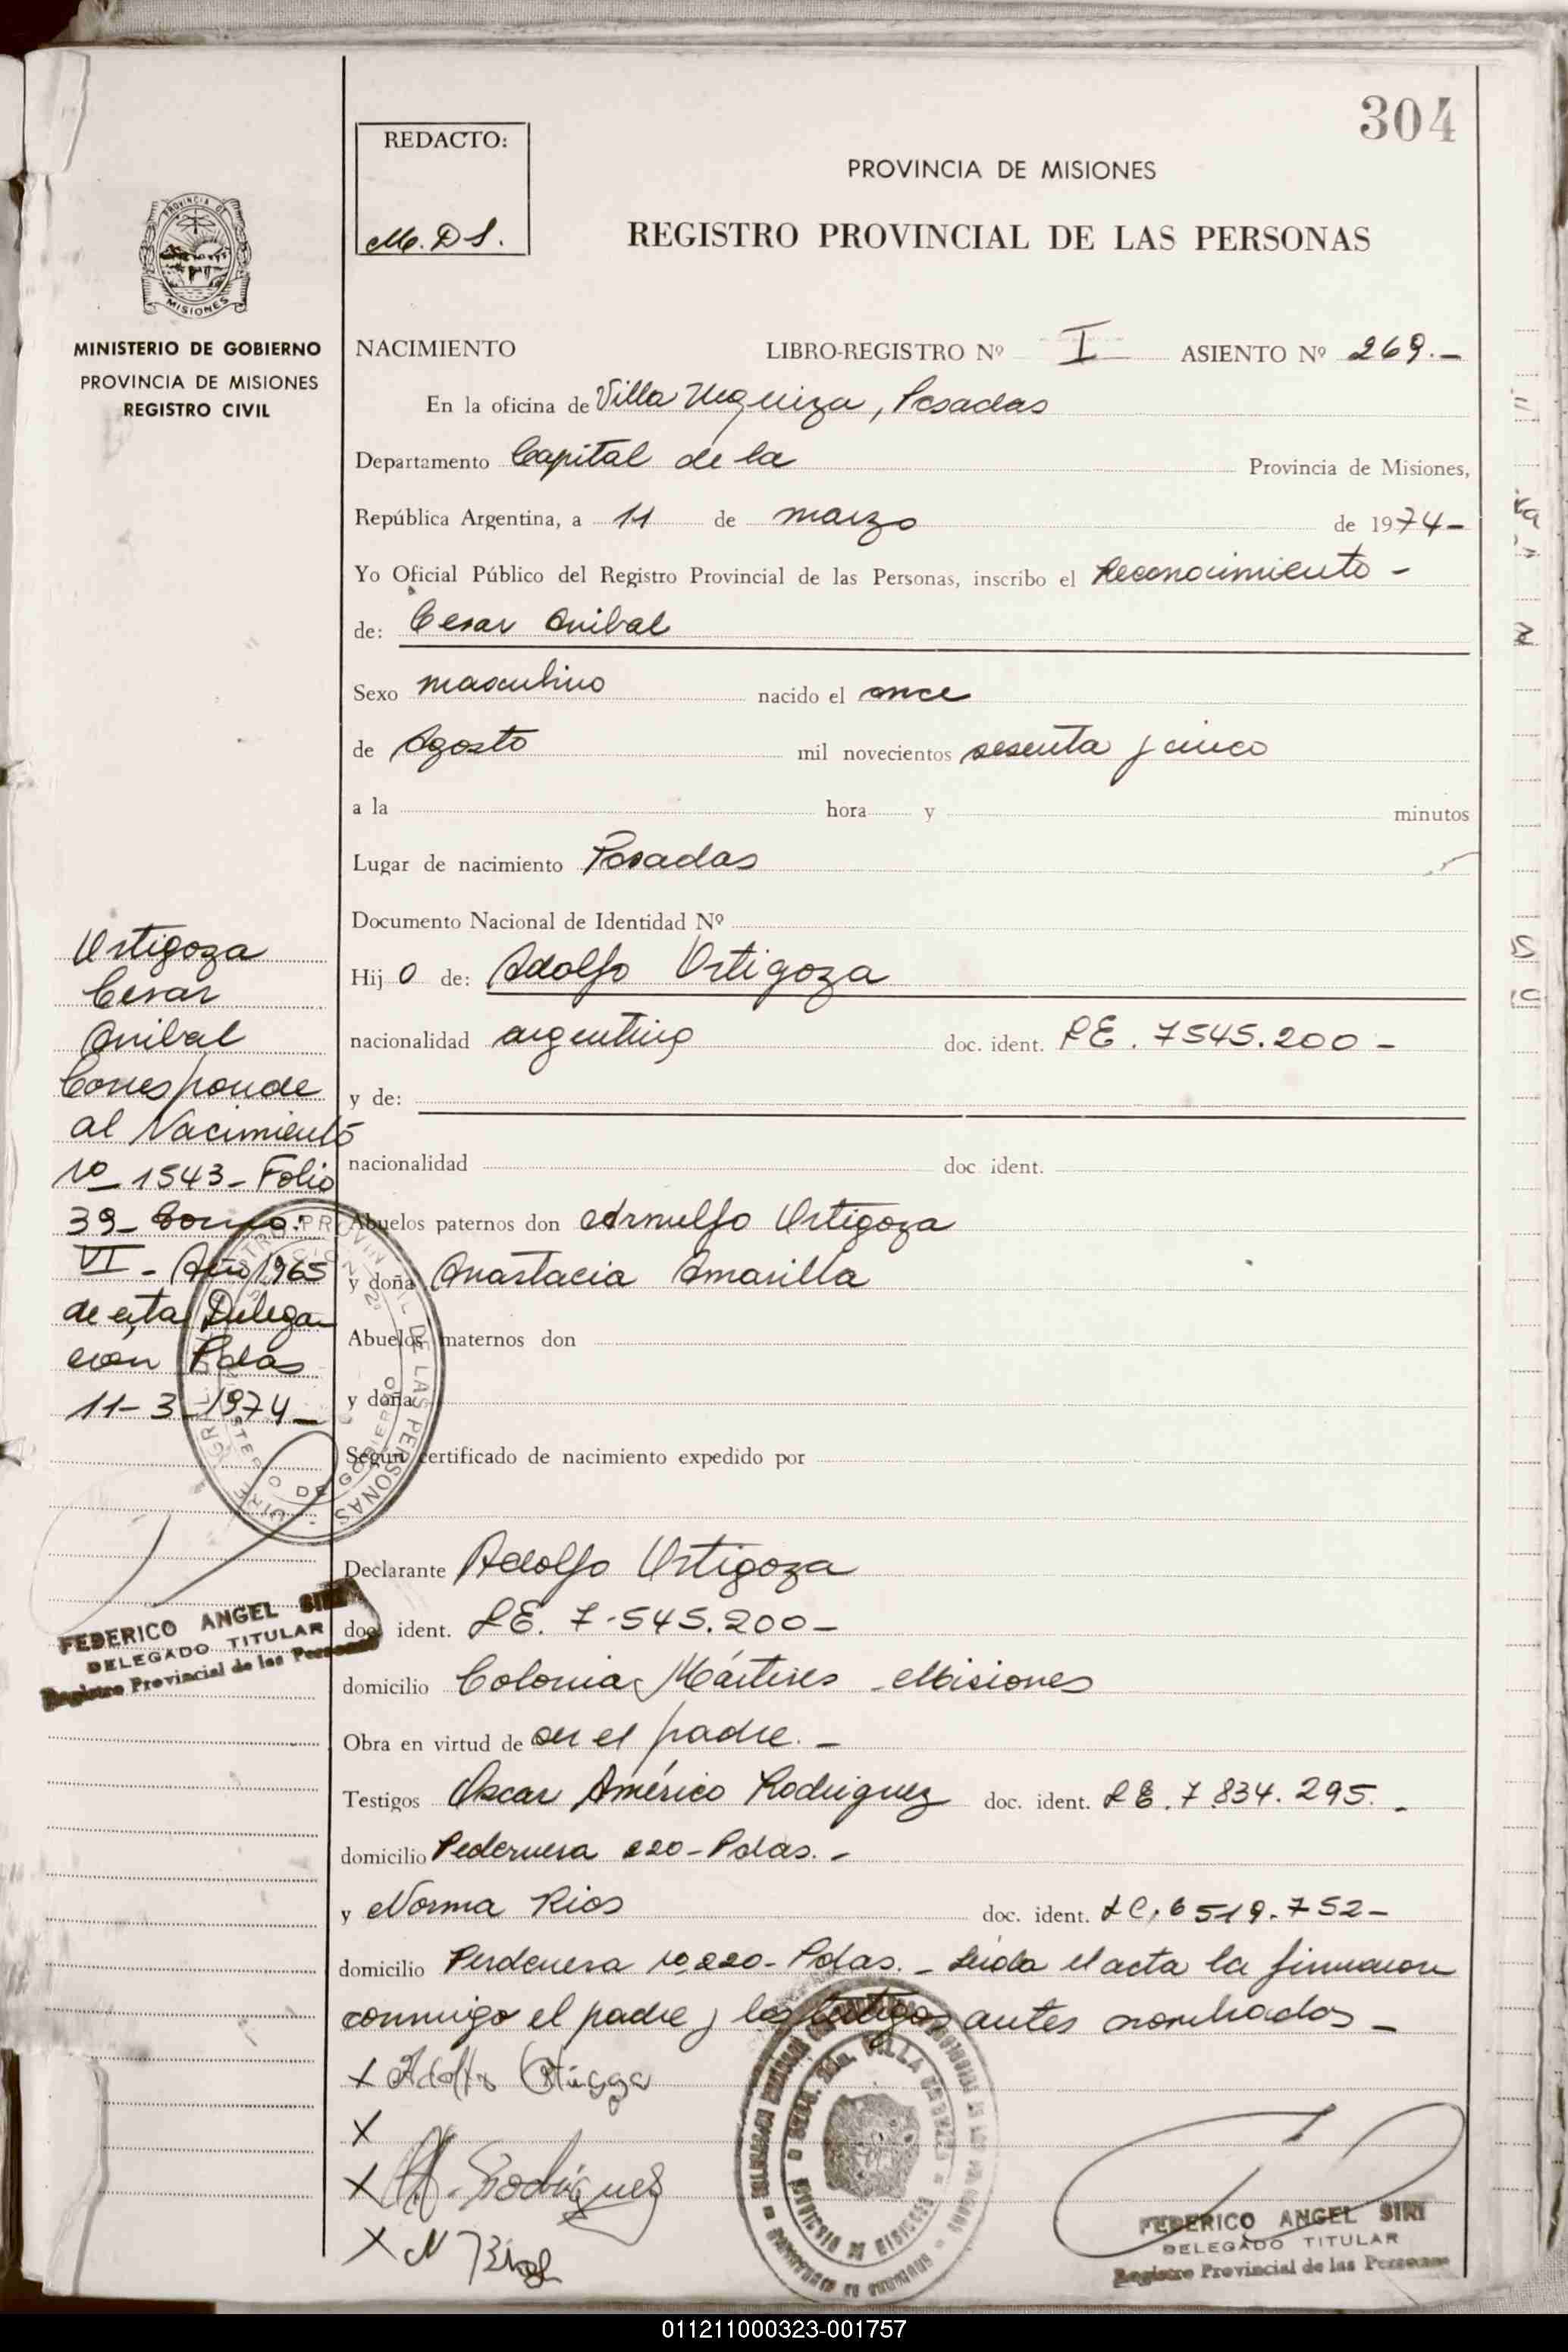 304
REDACTO:
M. D S.
PROVINCIA DE MISIONES
REGISTRO PROVINCIAL DE LAS PERSONAS
PROVINCIA DE
MISIONES
MINISTERIO DE GOBIERNO
PROVINCIA DE MISIONES
REGISTRO CIVIL
NACIMIENTO LIBRO-REGISTRO Nº I ASIENTO Nº 269.-
En la oficina de Villa Urquiza, Posadas
Departamento Capital de la Provincia de Misiones,
República Argentina, a 11 de marzo de 1974-
Yo Oficial Público del Registro Provincial de las Personas, inscribo el Reconocimiento -
de: Cesar Anibal
Sexo masculino nacido el once
de Agosto mil novecientos sesenta y cinco
a la hora y minutos
Lugar de nacimiento Posadas
Documento Nacional de Identidad Nº
Hij o de: Adolfo Ortigoza
nacionalidad argentino doc. ident. LE. 7545.200 -
y de:
nacionalidad doc. ident.
Abuelos paternos don Arnulfo Ortigoza
y doña Anastacia Amarilla
Abuelos maternos don
y doña
Según certificado de nacimiento expedido por
Declarante Adolfo Ortigoza
doc. ident. LE. 7.545.200-
domicilio Colonia Mártires - Misiones
Obra en virtud de ser el padre. -
Testigos Oscar Américo Rodriguez doc. ident. LE. 7.834.295. -
domicilio Pedernera 220-Pdas. -
y Norma Rios doc. ident. LC. 6519.752-
domicilio Perdenera nº 220- Pdas. - Leida el acta la firmaron
conmigo el padre y los testigos antes nombrados -
x Adolfo Ortigoza
x
x A. Rodríguez
x N Rios
Ortigoza
Cesar
Anibal
Corresponde
al Nacimiento
nº 1543- Folio
39- Tomo:
VI - Año 1965
de esta Delega
cion Pdas
11-3-1974-
FEDERICO ANGEL SIRI
DELEGADO TITULAR
Registro Provincial de las Personas
FEDERICO ANGEL SIRI
DELEGADO TITULAR
Registro Provincial de las Personas
011211000323-001757